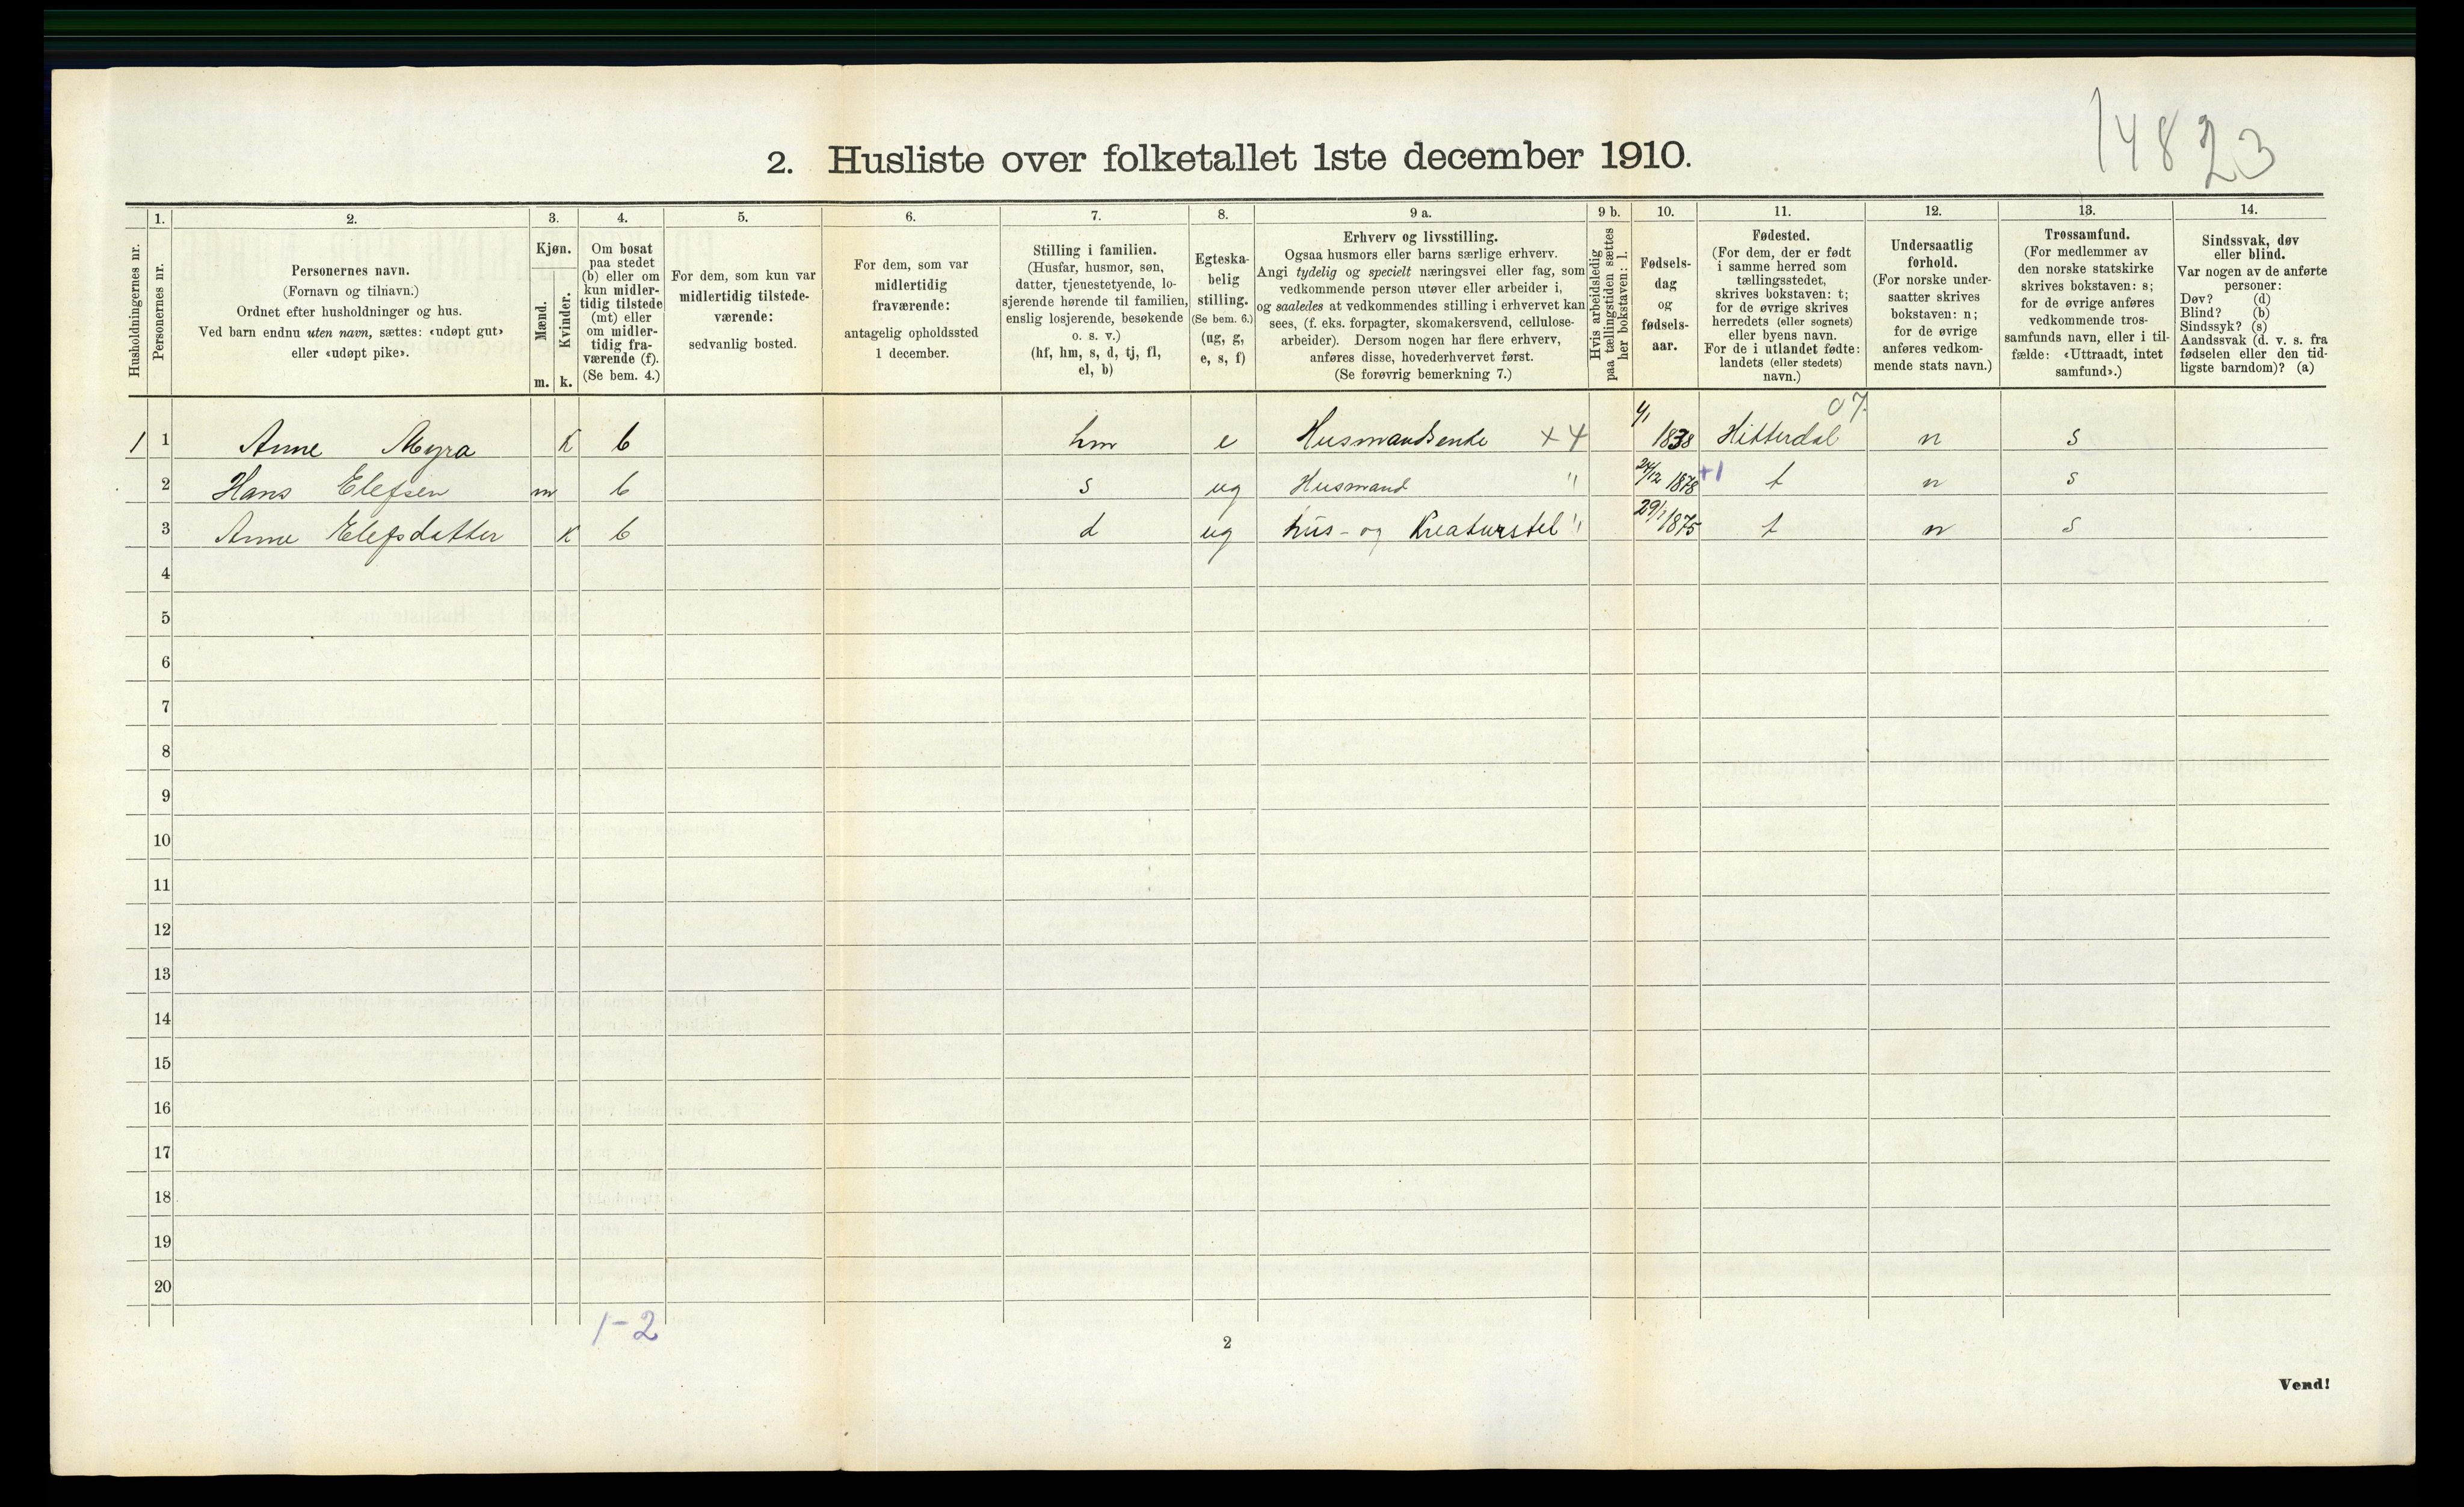 14823
2. Husliste over folketallet 1ste december 1910.
1. 2. 3. 4. 5. 6. 7. 8. 9 a. 9 b. 10. 11. 12. 13. 14.
Husholdningernes nr.
Personernes nr.
Personernes navn.
(Fornavn og tilnavn.)
Ordnet efter husholdninger og hus.
Ved barn endnu uten navn, sættes: «udøpt gut»
eller «udøpt pike».
Kjøn.
Mænd.
Kvinder.
m. k.
Om bosat
paa stedet
(b) eller om
kun midler-
tidig tilstede
(mt) eller
om midler-
tidig fra-
værende (f).
(Se bem. 4.)
For dem, som kun var
midlertidig tilstede-
værende:
sedvanlig bosted.
For dem, som var
midlertidig
fraværende:
antagelig opholdssted
1 december.
Stilling i familien.
(Husfar, husmor, søn,
datter, tjenestetyende, lo-
sjerende hørende til familien,
enslig losjerende, besøkende
o. s. v.)
(hf, hm, s, d, tj, fl,
el, b)
Egteska-
belig
stilling.
(Se bem. 6.)
(ug, g,
e, s, f)
Erhverv og livsstilling.
Ogsaa husmors eller barns særlige erhverv.
Angi tydelig og specielt næringsvei eller fag, som
vedkommende person utøver eller arbeider i,
og saaledes at vedkommendes stilling i erhvervet kan
sees, (f. eks. forpagter, skomakersvend, cellulose-
arbeider). Dersom nogen har flere erhverv,
anføres disse, hovederhvervet først.
(Se forøvrig bemerkning 7.)
Hvis arbeidsledig
paa tællingstiden sættes
her bokstaven: l.
Fødsels-
dag
og
fødsels-
aar.
Fødested.
(For dem, der er født
i samme herred som
tællingsstedet,
skrives bokstaven: t;
for de øvrige skrives
herredets (eller sognets)
eller byens navn.
For de i utlandet fødte:
landets (eller stedets)
navn.)
Undersaatlig
forhold.
(For norske under-
saatter skrives
bokstaven: n;
for de øvrige
anføres vedkom-
mende stats navn.)
Trossamfund.
(For medlemmer av
den norske statskirke
skrives bokstaven: s;
for de øvrige anføres
vedkommende tros-
samfunds navn, eller i til-
fælde: «Uttraadt, intet
samfund».)
Sindssvak, døv
eller blind.
Var nogen av de anførte
personer:
Døv? (d)
Blind? (b)
Sindssyk? (s)
Aandssvak (d. v. s. fra
fødselen eller den tid-
ligste barndom)? (a)
07
1 1 Anne Myra K b hm e Husmandsenke x4 1838 Hitterdal n s
2 Hans Elefsen m b s ug Husmand " 24/12 1878 +1 t n s
3 Anne Elefsdatter K b d ug hus- og Kreaturstel " 29/1 1875 t n s
4
5
6
7
8
9
10
11
12
13
14
15
16
17
18
19
20
1-2
2
Vend!